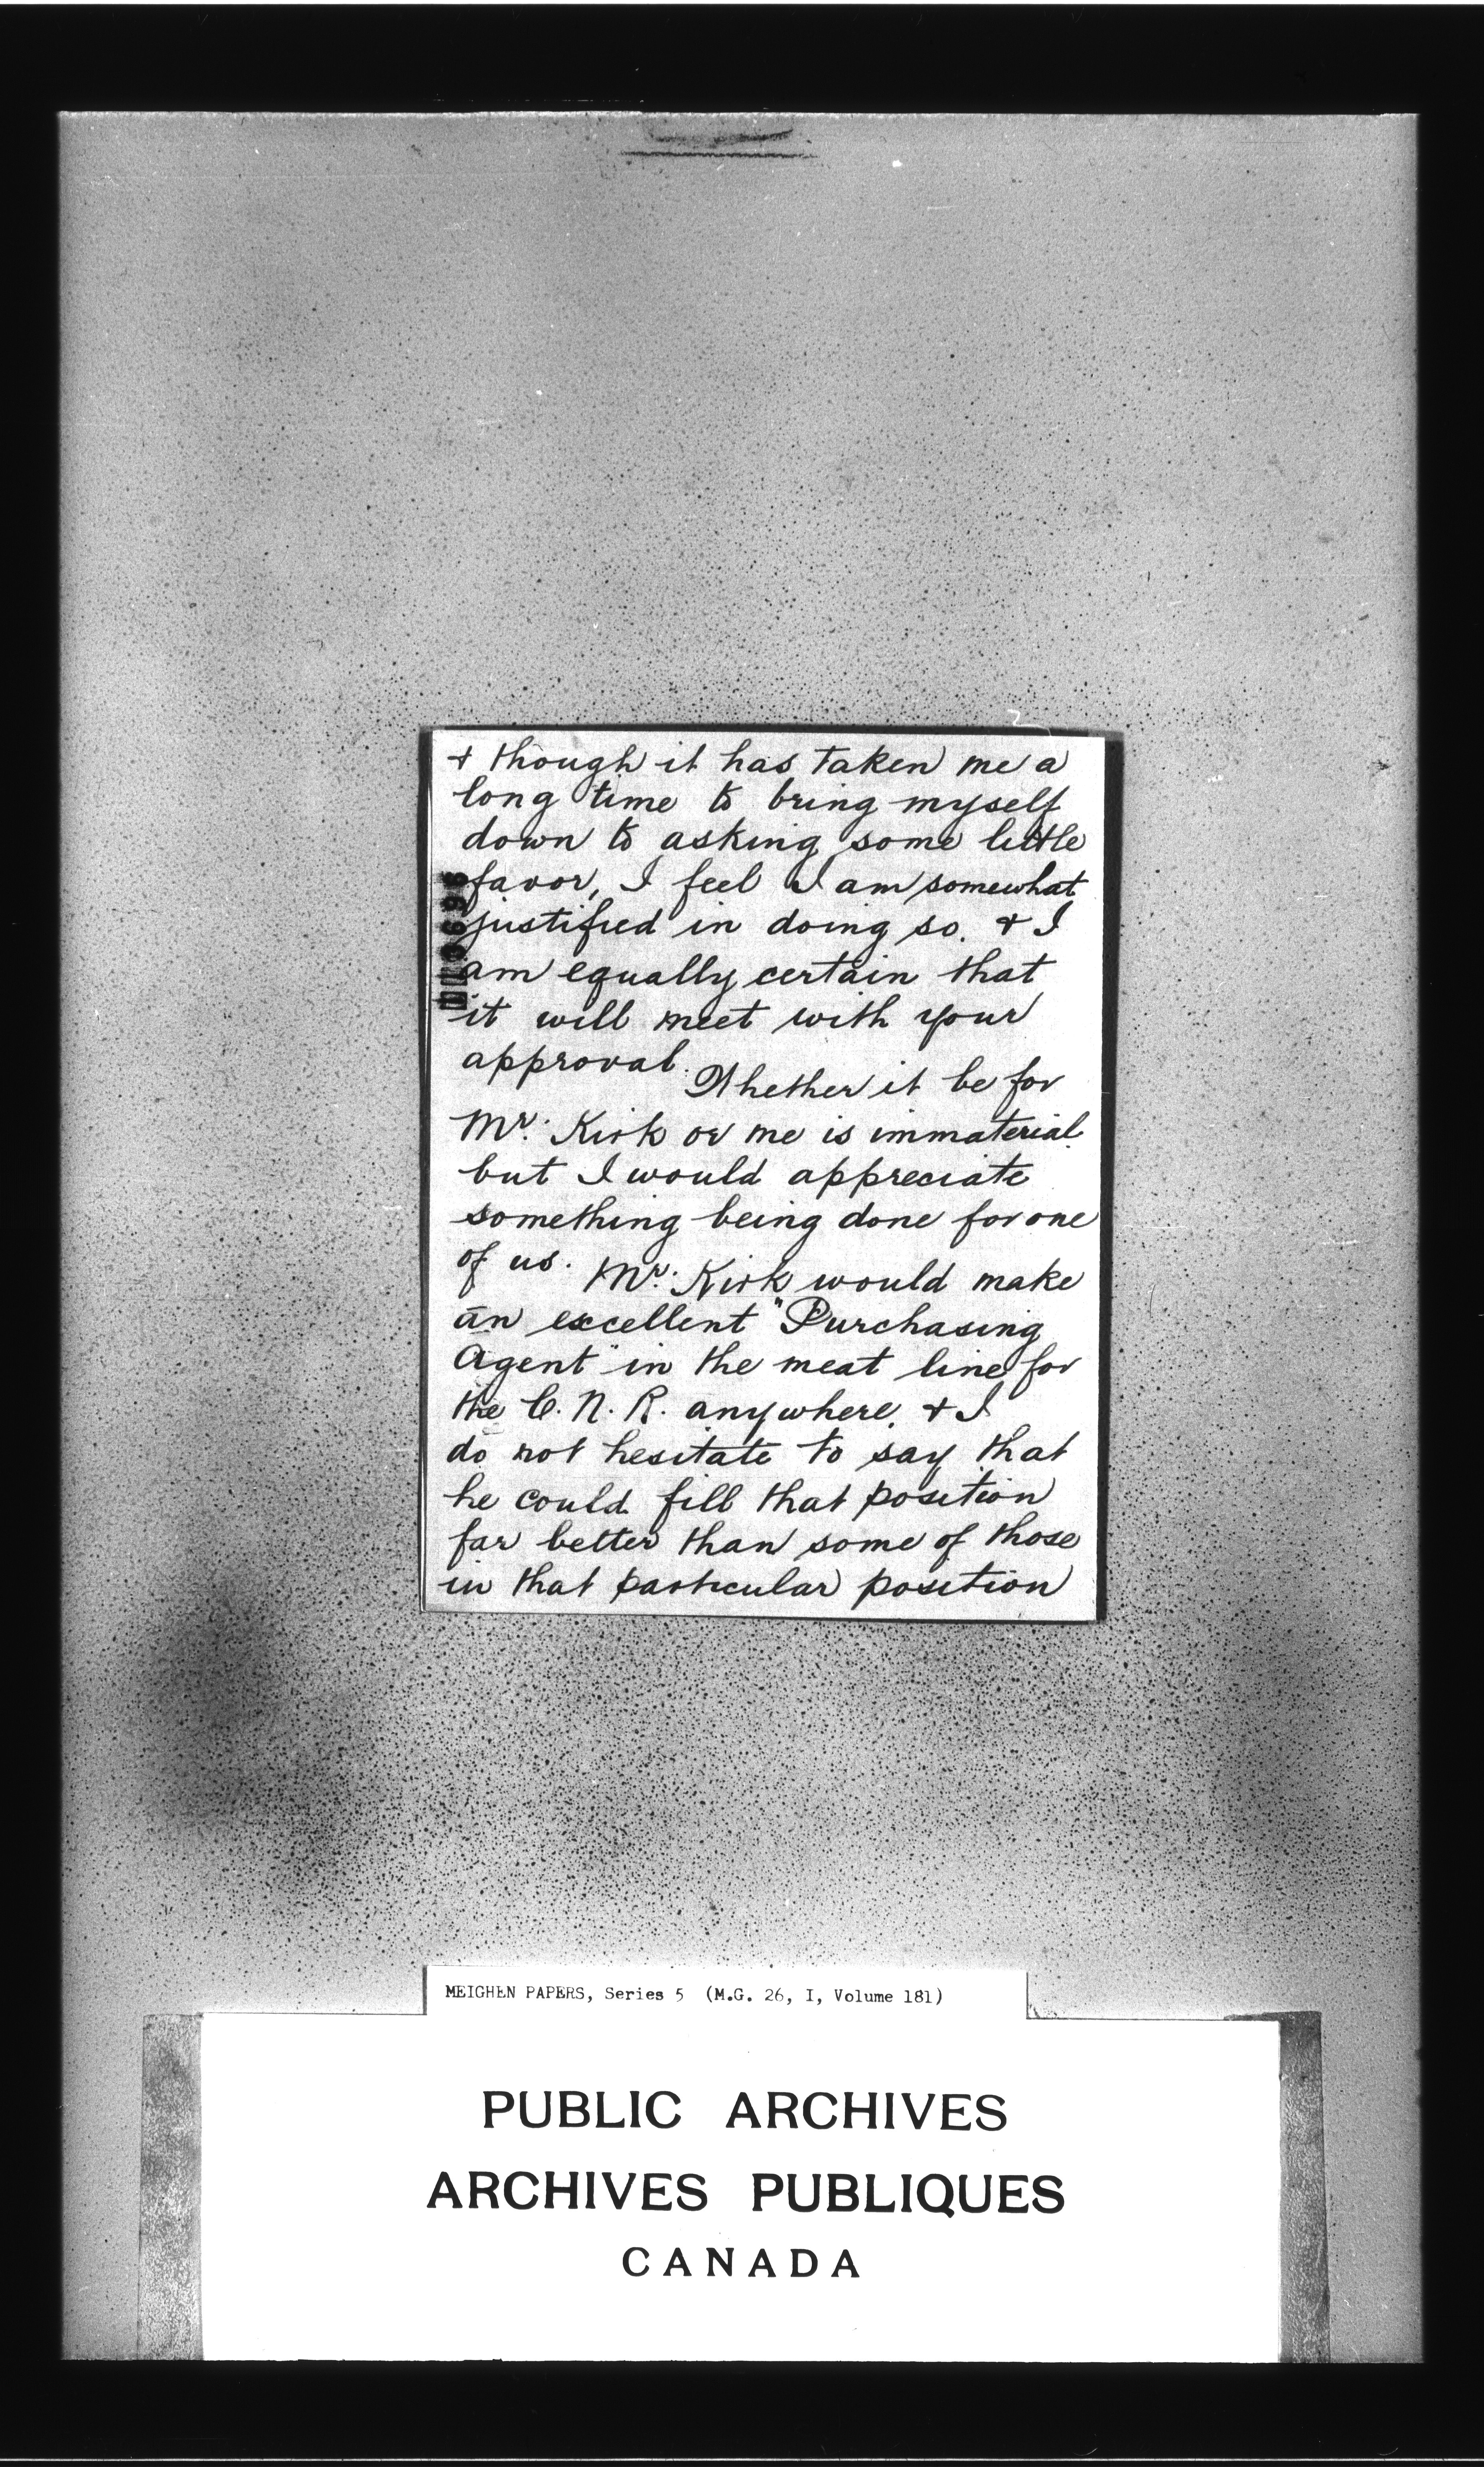 & though it has taken me a
long time to bring myself
down to asking some little
favor, I feel I am somewhat
justified in doing so. & I
am equally certain that
it will meet with your
approval.
Whether it be for
Mr. Kirk or me is immaterial
but I would appreciate
something being done for one
of us. Mr. Kirk would make
an excellent "Purchasing
Agent" in the meat line for
the C. N. R. anywhere, & I
do not hesitate to say that
he could fill that position
far better than some of those
in that particular position
MEIGHEN PAPERS, Series 5 (M.G. 26, I, Volume 181)
PUBLIC ARCHIVES
ARCHIVES PUBLIQUES
CANADA